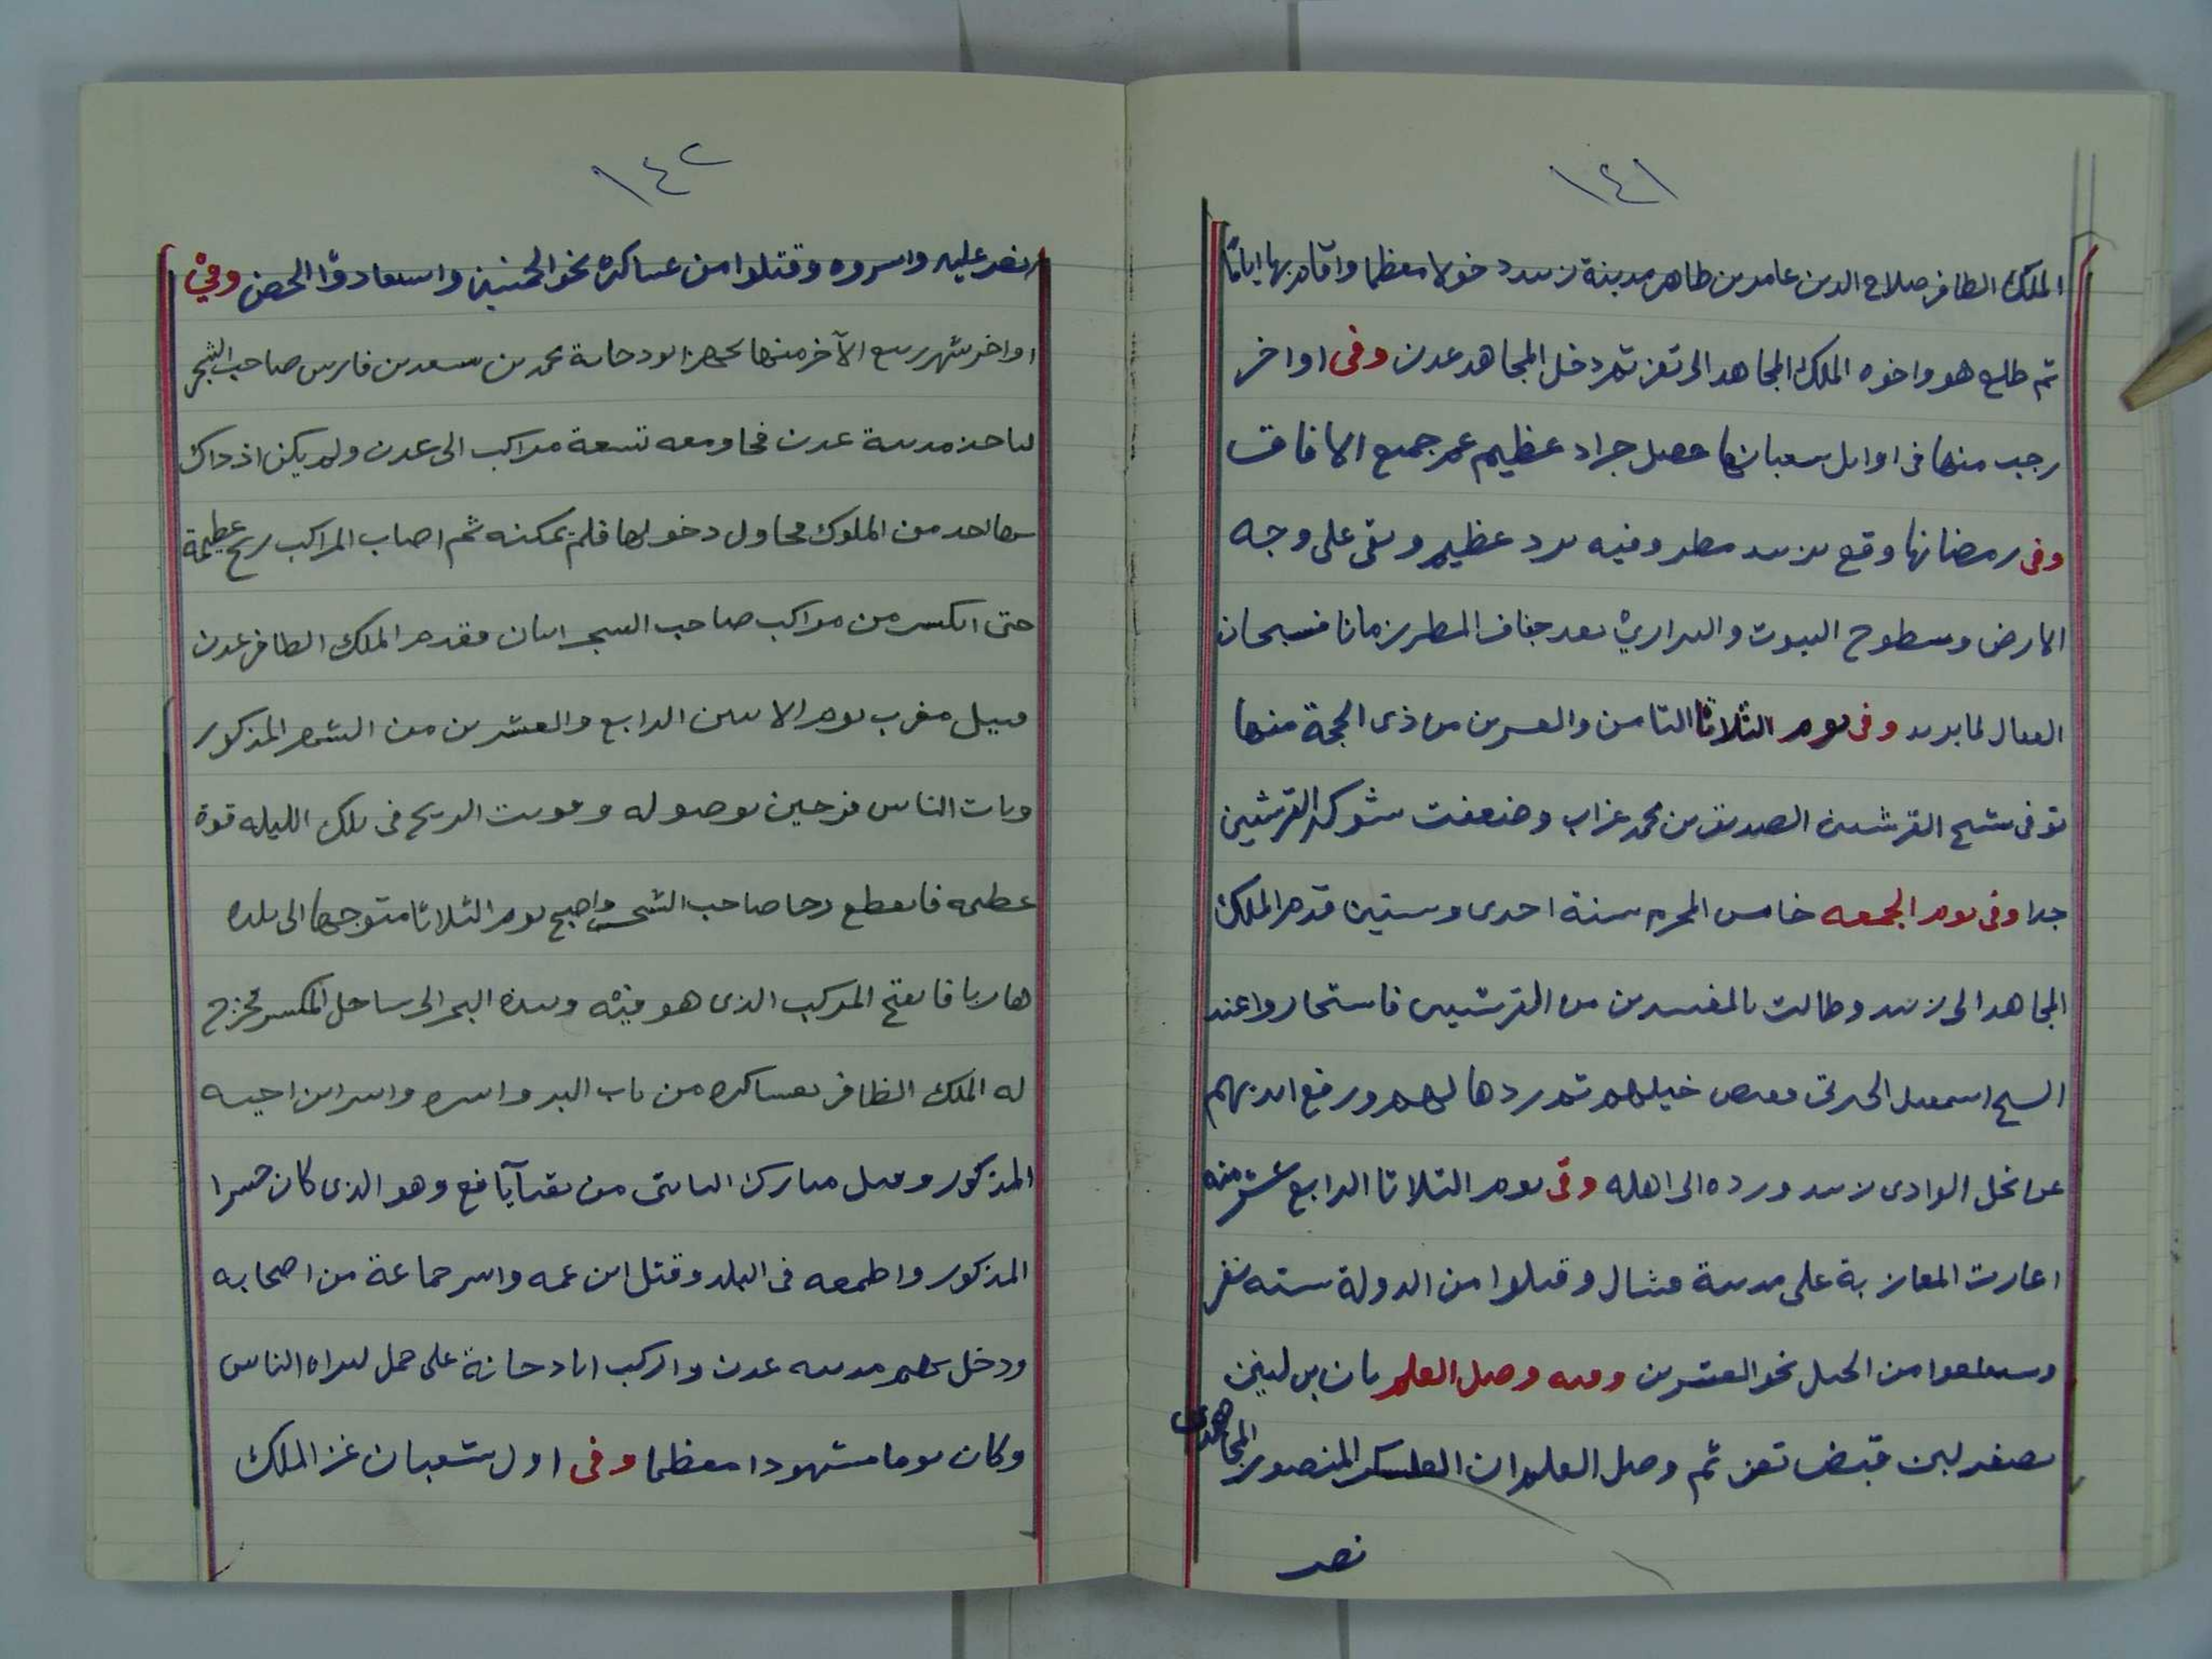 ١٤١
الملك الظافر صلاح الدين عامر بن طاهر مدينة زبيد دخولا معظما واقام بها اياما
ثم طلع هو واخوه الملك المجاهد الى تعز ثم دخل المجاهد عدن وفى اواخر
رجب منها فى اوايل شعبانها حصل جراد عظيم عم جميع الافاق
وفى رمضانها وقع بزبيد مطر وفيه برد عظيم وبقى على وجه
الارض وسطوح البيوت والبراري بعد جفاف المطر زمانا فسبحان
الفعال لما يريد وفى يوم الثلاثا الثامن والعشرين من ذى الحجة منها
توفى شيخ القرشيين الصديق بن محمد غراب وضعفت شوكة القرشيين
جدا وفى يوم الجمعه خامس المحرم سنة احدى وستين قدم الملك
المجاهد الى زبيد وطالب بالمفسدين من القرشيين فاستجاروا عند
الشيخ اسمعيل الجبرتى فقبض خيلهم ثم ردها لهم ورفع ايديهم
عن نخل الوادى زبيد ورده الى اهله وفى يوم الثلاثا الرابع عشر منه
اغارت المعازبة على مدينة فشال وقتلوا من الدولة سته نفر
واستلعوا من الخيل نحو العشرين وفيه وصل العلم بان بن لبنين
بصفر لبن قبض تعز ثم وصل العلم ان العسكر المنصور المجاهدى
نصر
١٤٢
نصر عليه واسروه وقتلوا من عساكره نحو الخمسين واستعادوا الحصن وفي
اواخر شهر ربيع الآخر منها تجهز ابو دجانة محمد بن سعد بن فارس صاحب الشجر
لياخذ مدينة عدن فجا ومعه تسعة مراكب الى عدن ولم يكن اذ ذاك
بها احد من الملوك فحاول دخولها فلم يمكنه ثم اصاب المراكب ريح عظيمة
حتى انكسر من مراكب صاحب الشحر اثنان فقدم الملك الظافر عدن
قبيل مغرب يوم الاثنين الرابع والعشرين من الشهر المذكور
وبات الناس فرحين بوصوله وقويت الريح فى تلك الليله قوة
عظيمه فانقطع رجا صاحب الشحر واصبح يوم الثلاثا متوجها الى بلده
هاربا فانفتح المركب الذى هو فيه ونبذه البحر الى ساحل المكسر فخرج
له الملك الظافر بعساكره من باب البر واسره واسر ابن اخيه
المذكور وقتل مبارك الثابتى من نقبآ يافع وهو الذى كان جسرا
المذكور واطمعه فى البلد وقتل ابن عمه واسر جماعة من اصحابه
ودخل بهم مدينه عدن واركب ابا دجانة على جمل ليراه الناس
وكان يوما مشهودا معظما وفى اول شعبان غزا الملك